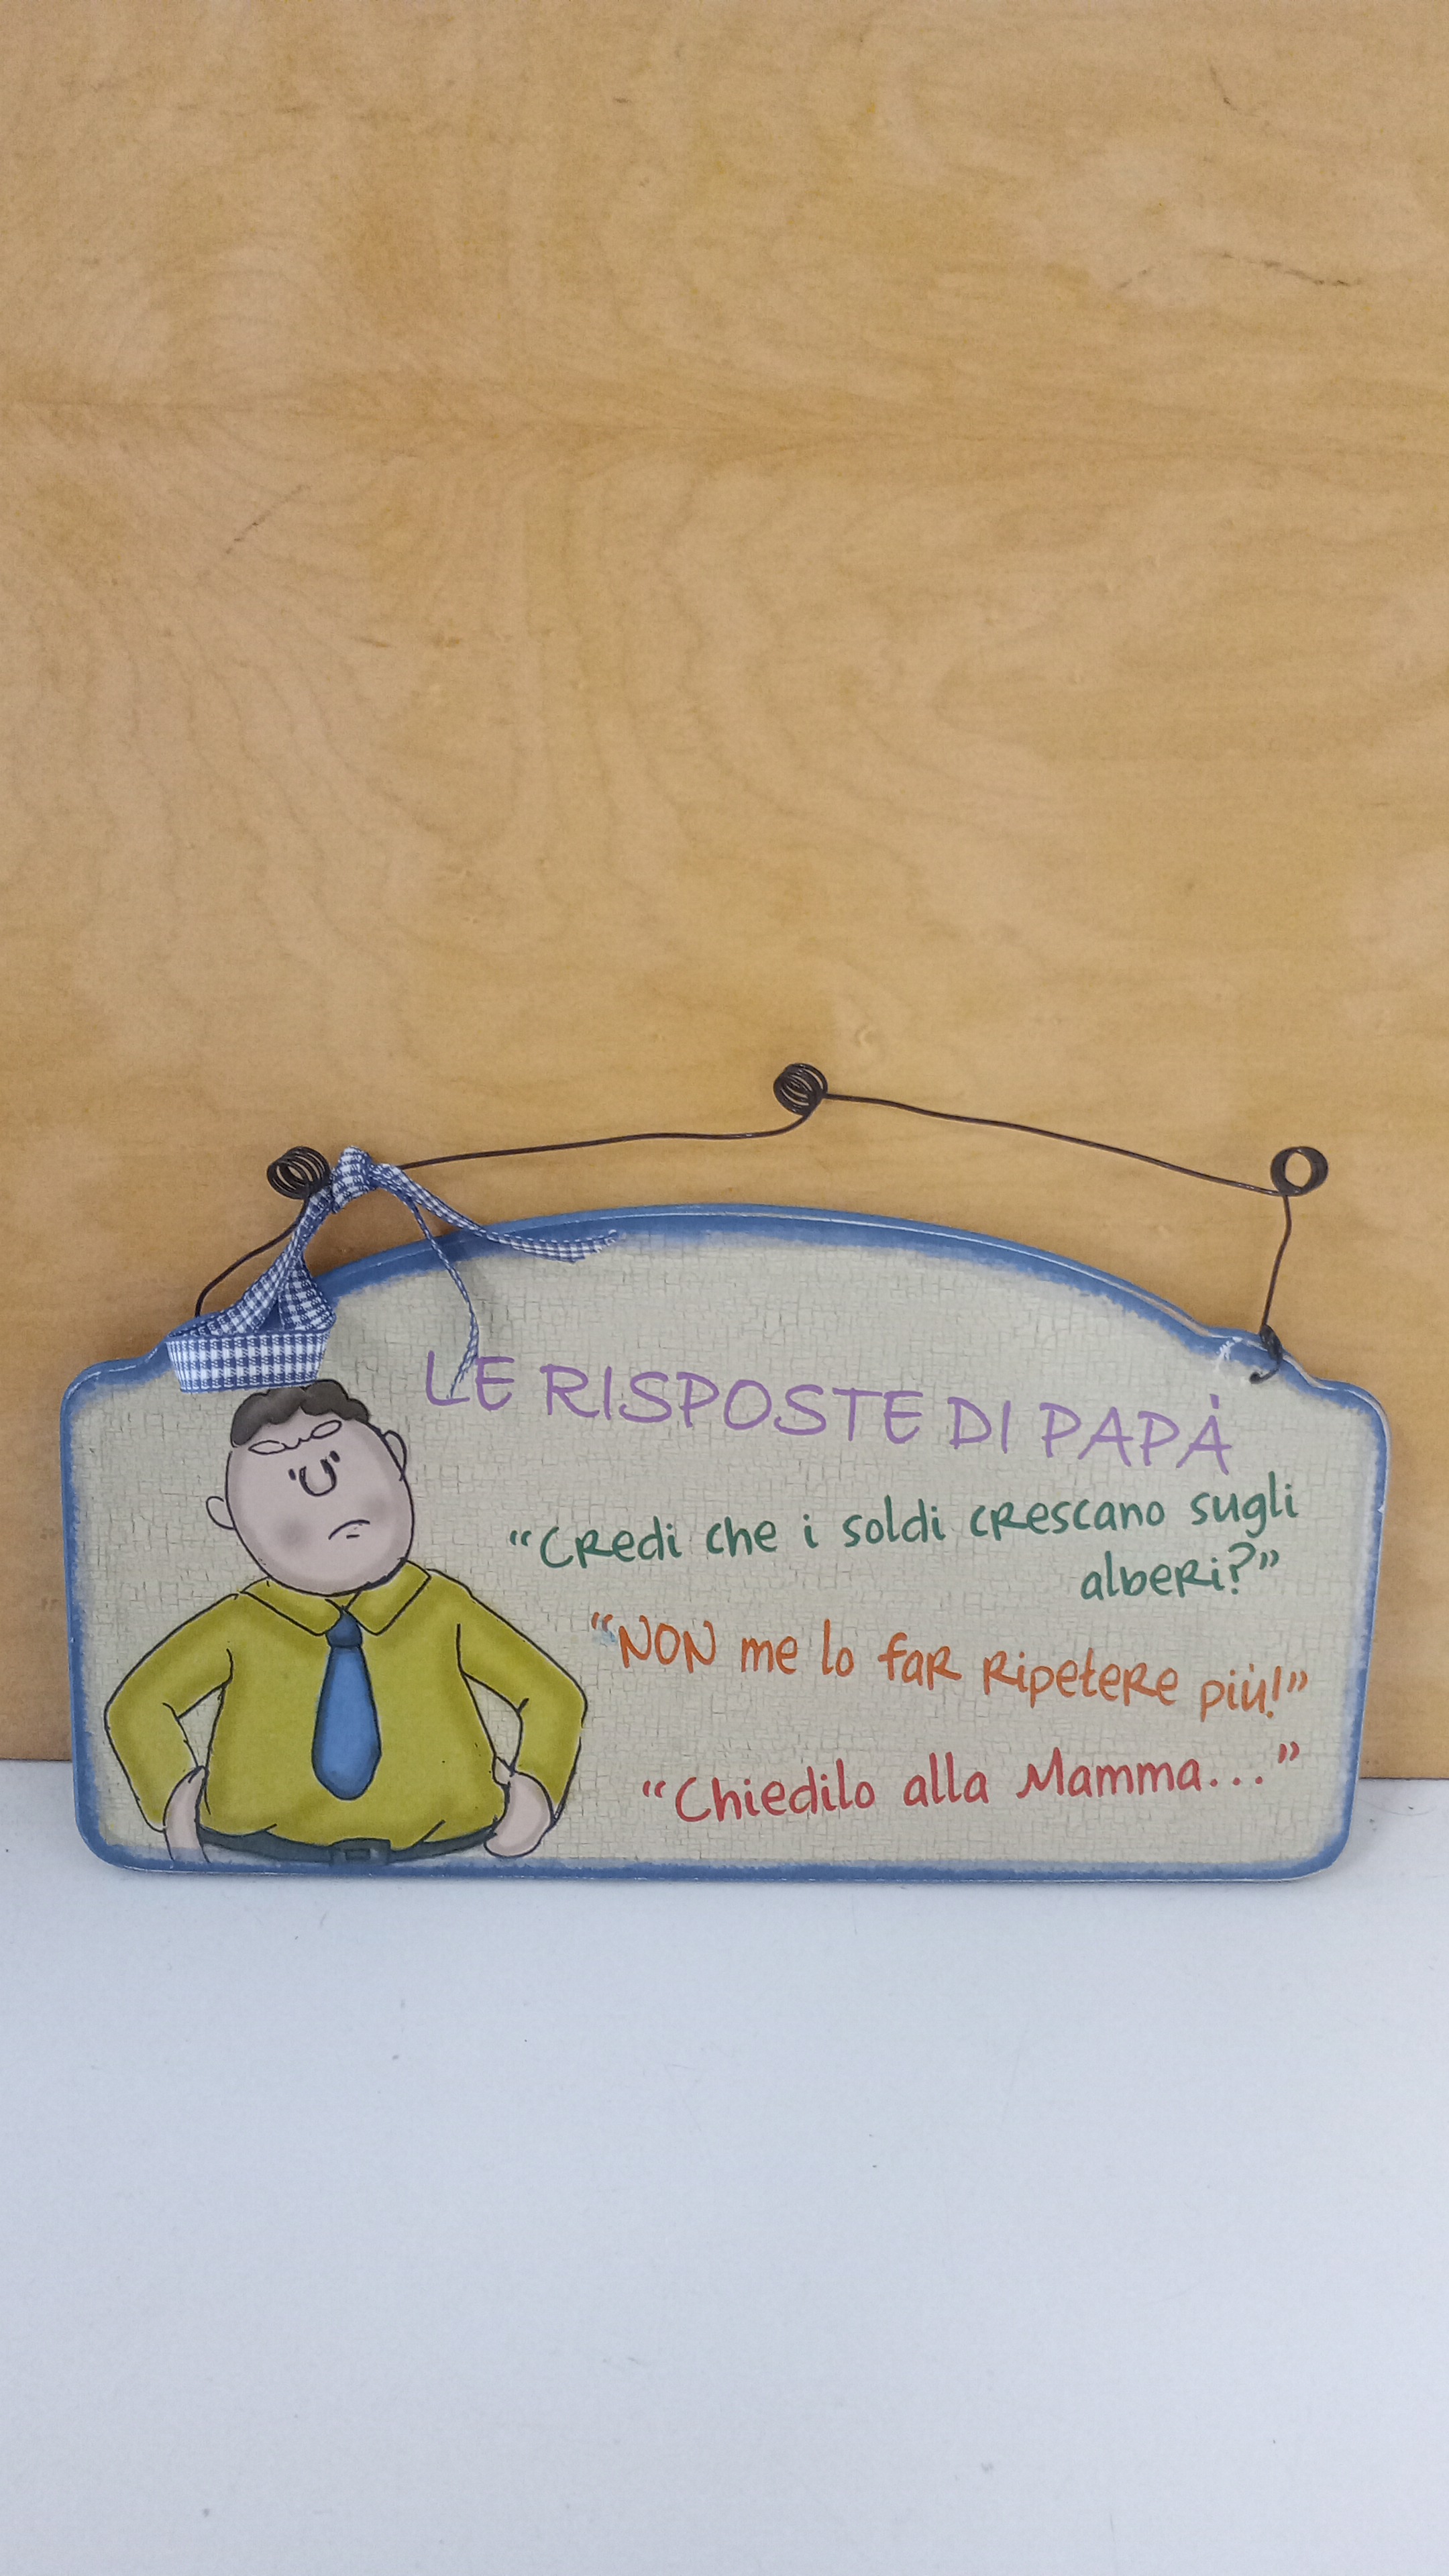 LE RISPOSTE DI PAPÀ
“Credi che i soldi crescano sugli
alberi?”
“NON me lo far ripetere più!”
“Chiedilo alla Mamma...”